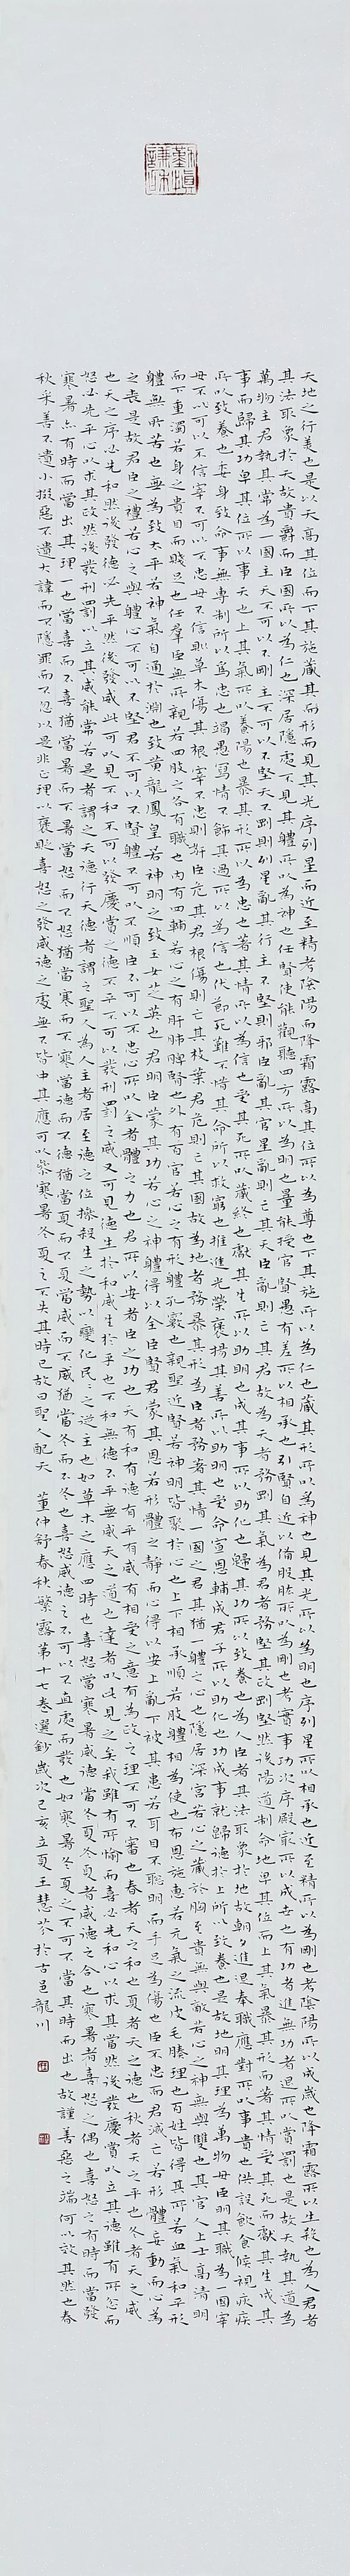 天地之行美也是以天高其位而下其施藏其而形而見其光序列星而近至精考陰陽而降霜露高其位所以為尊也下其施所以為仁也藏其形所以為神也見其光所以為明也序列星所以相承也近至精所以為剛也考陰陽所以成歲也降霜露所以生殺也為人君者
其法取象於天故貴爵而臣國所以為仁也深居隱處不見其體所以為神也任賢使能觀聽四方所以為明也量能授官賢愚有差所以相承也引賢自近以備股肱所以為剛也考實事功次序殿最所以成世也有功者進無功者退所以賞罰也是故天執其道為
萬物主君執其常為一國主天不可以不剛主不可以不堅天不剛則列星亂其行主不堅則邪臣亂其官星亂則亡其天臣亂則亡其君故為天者務剛其氣為君者務堅其政剛堅然後陽道制命地卑其位而上其氣暴其形而著其情受其死而獻其生成其
事而歸其功卑其位所以事天也上其氣所以養陽也暴其形所以為忠也著其情所以為信也受其死所以藏終也獻其生所以助明也成其事所以助化也歸其功所以致養也為人臣者其法取象於地故朝夕進退奉職應對所以事貴也供設飲食候視疢疾
所以致養也委身致命事無專制所以為忠也竭愚寫情不飾其過所以為信也伏節死難不惜其命所以救窮也推進光榮褒揚其善所以助明也受命宣恩輔成君子所以助化也功成事就歸德於上所以致養也是故地明其理為萬物母臣明其職為一國宰
母不可以不信宰不可以不忠母不信則草木傷其根宰不忠則姦臣危其君根傷則亡其枝葉君危則亡其國故為地者務暴其形為臣者務著其情一國之君其猶一體之心也隱居深宮若心之藏於胸至貴無與敵若心之神無與雙也其官人上士高清明
而下重濁若身之貴目而賤足也任羣臣無所親若四肢之各有職也內有四輔若心之有肝肺脾腎也外有百官若心之有形體孔竅也親聖近賢若神明皆聚於心也上下相承順若肢體相為使也布恩施惠若元氣之流皮毛腠理也百姓皆得其所若血氣和平形
體無所苦也無為致太平若神氣自通於淵也致黃龍鳳皇若神明之致玉女芝英也君明臣蒙其功若心之神體得以全臣賢君蒙其恩若形體之靜而心得以安上亂下被其患若耳目不聰明而手足為傷也臣不忠而君滅亡若形體妄動而心為
之喪是故君臣之禮若心之與體心不可以不堅君不可以不賢體不可以不順臣不可以不忠心所以全者體之力也君所以安者臣之功也天有和有德有平有威有相受之意有為政之理不可不審也春者天之和也夏者天之德也秋者天之平也冬者天之威
也天之序必先和然後發德必先平然後發威此可以見不和不可以發慶賞之德不平不可以發刑罰之威又可見德生於和威生於平也不和無德不平無威天之道也達者以此見之矣我雖有所愉而喜必先和心以求其當然後發慶賞以立其德雖有所忿而
怒必先平心以求其政然後發刑罰以立其威能常若是者謂之天德行天德者謂之聖人為人主者居至德之位操殺生之勢以變化民民之從主也如草木之應四時也喜怒當寒暑威德當冬夏冬夏者威德之合也寒暑者喜怒之偶也喜怒之有時而當發
寒暑亦有時而當出其理一也當喜而不喜猶當暑而不暑當怒而不怒猶當寒而不寒當德而不德猶當夏而不夏當威而不威猶當冬而不冬也喜怒威德之不可以不直處而發也如寒暑冬夏之不可不當其時而出也故謹善惡之端何以效其然也春
秋采善不遺小掇惡不遺大諱而不隱罪而不忽以是非正理以褒貶喜怒之發威德之處無不皆中其應可以參寒暑冬夏之不失其時已故曰聖人配天 董仲舒春秋繁露第十七卷選鈔歲次己亥立夏王慧芩於古邑龍川